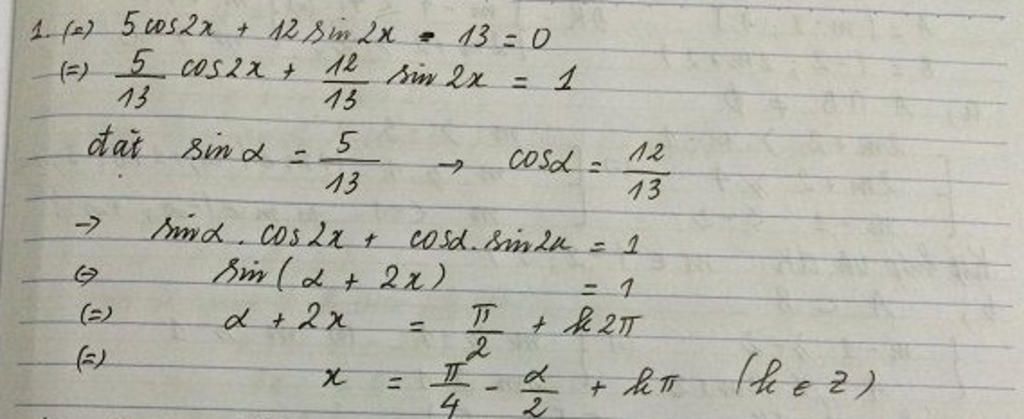 1. (=) 5cos2x + 12sin2x - 13 = 0
(=) 5/13 cos2x + 12/13 sin2x = 1
đặt sinα = 5/13 → cosα = 12/13
→ sinα.cos2x + cosα.sin2x = 1
(=) sin(α + 2x) = 1
(=) α + 2x = π/2 + k2π
(=) x = π/4 - α/2 + kπ (k ∈ Z)